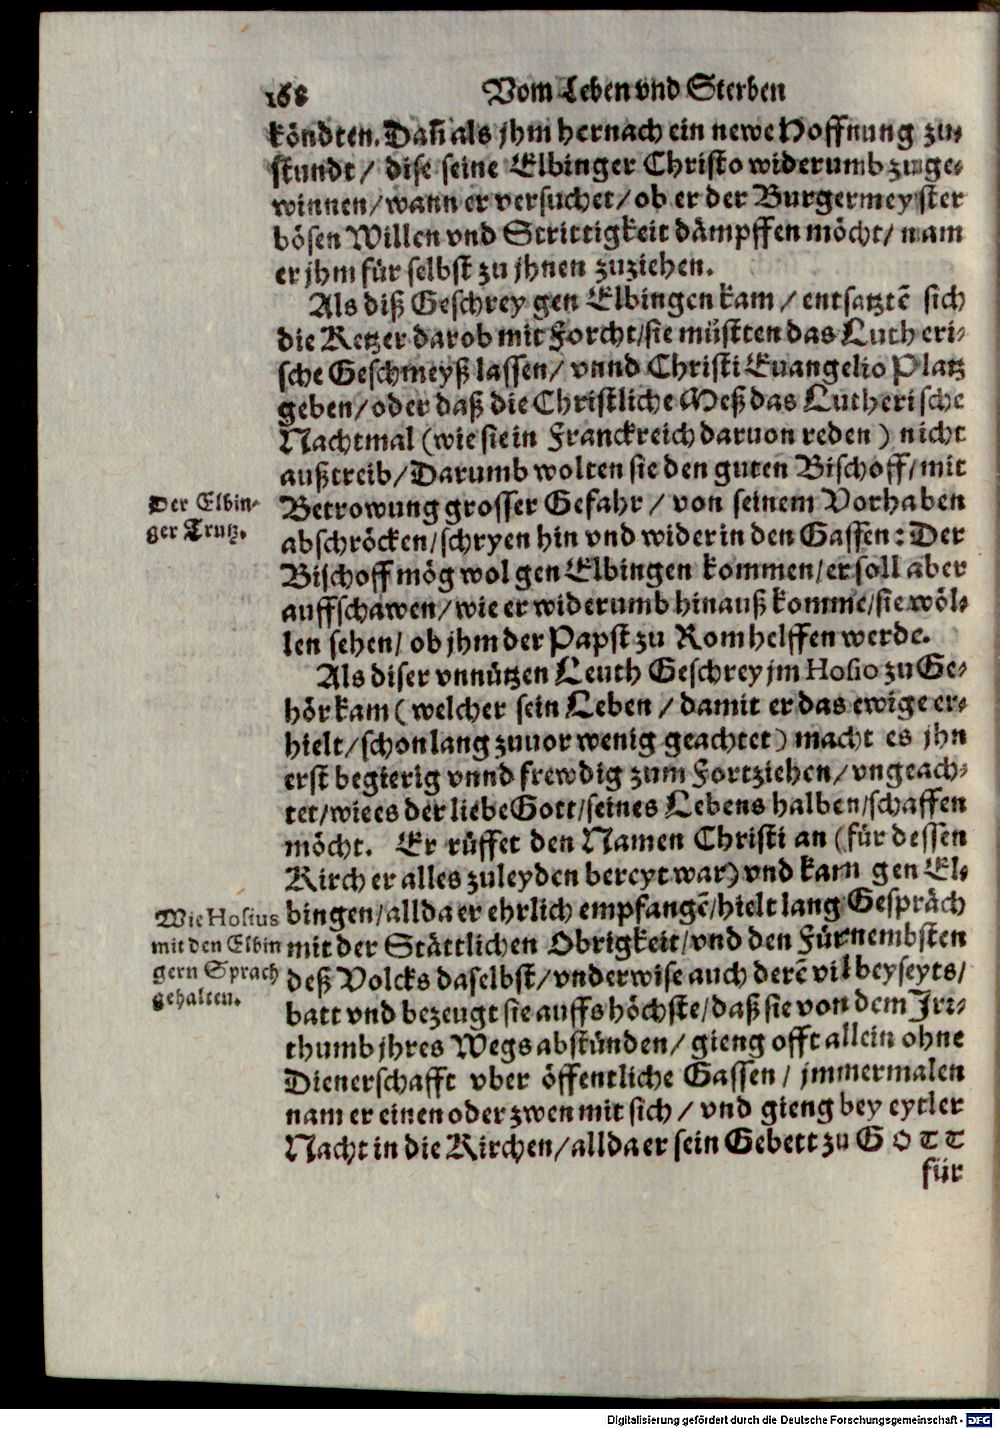 168 Vom Leben vnd Sterben
köndten. Dañ als jhm hernach ein newe Hoffnung zu-
stundt / dise seine Elbinger Christo widerumb zu ge-
winnen / wann er versuchet / ob er der Burgermeyster
bösen Willen vnd Strittigkeit dämpffen möcht / nam
er jhm für selbst zu jhnen zuziehen.
Als diß Geschrey gen Elbingen kam / entsatztē sich
die Ketzer darob mit Forcht / sie müstten das Lutheri-
sche Geschmeyß lassen / vnnd Christi Euangelio Platz
geben / oder daß die Christliche Meß das Lutherische
Nachtmal (wie sie in Franckreich daruon reden) nicht
außtreib / Darumb wolten sie den guten Bischoff / mit
Der Elbin-
ger Trutz.
Betrowung grosser Gefahr / von seinem Vorhaben
abschröcken / schryen hin vnd wider in den Gassen: Der
Bischoff mög wol gen Elbingen kommen / er soll aber
auffschawen / wie er widerumb hinauß komme / sie wöl-
len sehen / ob jhm der Papst zu Rom helffen werde.
Als diser vnnützen Leuth Geschrey jm Hosio zu Ge-
hör kam (welcher sein Leben / damit er das ewige er-
hielt / schon lang zuuor wenig geachtet) macht es jhn
erst begierig vnnd frewdig zum Fortziehen / vngeach-
tet / wie es der liebe Gott / seines Lebens halben / schaffen
möcht. Er rüffet den Namen Christi an (für dessen
Kirch er alles zuleyden bereyt war) vnd kam gen El-
Wie Hosius
mit den Elbin
gern Sprach
gehalten.
bingen / allda er ehrlich empfangē / hielt lang Gespräch
mit der Stättlichen Obrigkeit / vnd den Fürnembsten
deß Volcks daselbst / vnderwise auch derē vil beyseyts /
batt vnd bezeugt sie auffs höchste / daß sie von dem Irr-
thumb jhres Wegs abstünden / gieng offt allein ohne
Dienerschafft vber öffentliche Gassen / jmmermalen
nam er einen oder zwen mit sich / vnd gieng bey eytler
Nacht in die Kirchen / allda er sein Gebett zu GOTT
für
Digitalisierung gefördert durch die Deutsche Forschungsgemeinschaft - DFG